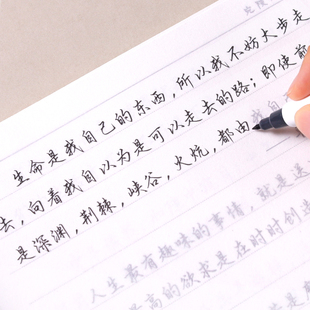 生命是我自己的东西,所以我不妨大步走
去,向着我自以为是可以走去的路;即使前
是深渊,荆棘,峡谷,火坑,都由我自
人生最有趣味的事情,就是送
最高的欲求是在时时创造